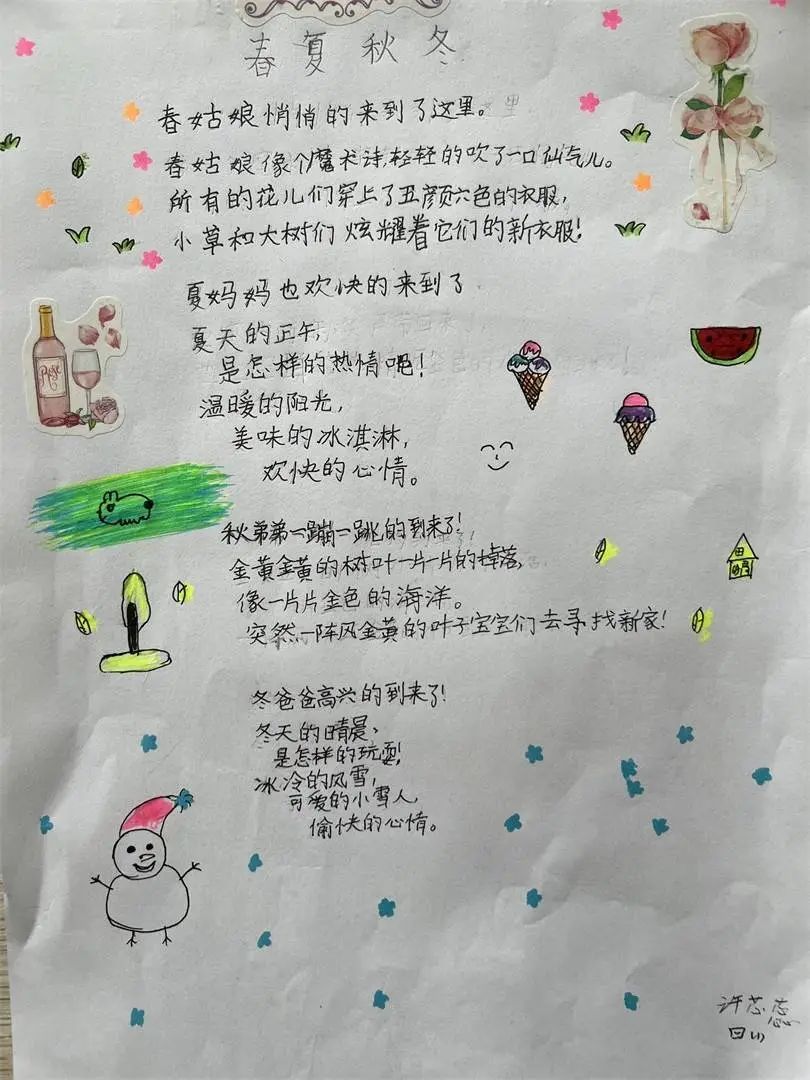 春夏秋冬
春姑娘悄悄的来到了这里。
春姑娘像个魔术诗,轻轻的吹了一口仙气儿。
所有的花儿们穿上了丑颜六色的衣服,
小草和大树们炫耀着它们的新衣服!
夏妈妈也欢快的来到了
夏天的正午,
是怎样的热情吧!
温暖的阳光,
美味的冰淇淋,
欢快的心情。
秋弟弟一蹦一跳的到来了!
金黄金黄的树叶一片一片的掉落,
像一片片金色的海洋。
突然一阵风金黄的叶子宝宝们去寻找新家!
冬爸爸高兴的到来了!
冬天的晴晨、
是怎样的玩耍!
冰冷的风雪,
可爱的小雪人,
偷快的心情。
Rose
许芯蕊
四(1)